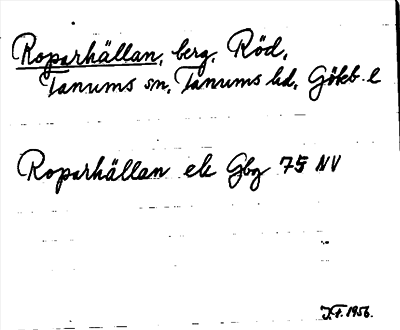 Roparhällan, berg, Röd,
Tanums sn, Tanums hd, Göteb. l
Roparhällan ek Gbg 75 NV
J.F. 1956.